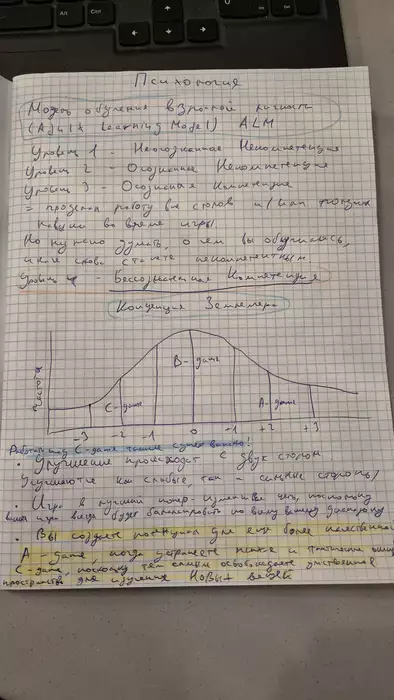 Alt
Ctrl
Психология
Модель обучения взрослой личности
(Adult Learning Model) ALM
Уровень 1 - Неосознанная Некомпетенция
Уровень 2 - Осознанная Некомпетенция
Уровень 3 - Осознанная Компетенция
= проделал работу вне столов и/или
навыки во время игры.
Но нужно думать, о чем вы обучались,
иначе снова станете некомпетентным.
Уровень 4 - Бессознательная Компетенция
Концепция Землемера
B-game
C-game
A-game
-3 -2 -1 0 -1 +2 +3
Работа над C-game также важно!
• Улучшение происходит с двух сторон
улучшаются как слабые, так и сильные стороны
• Игра в лучший покер - поскольку
ваша игра всегда будет по всему вашему
• Вы создаёте для еще более
A-game, когда устраняете и
C-game, поскольку тем самым освобождаете умственное
пространство для изучения новых вещей